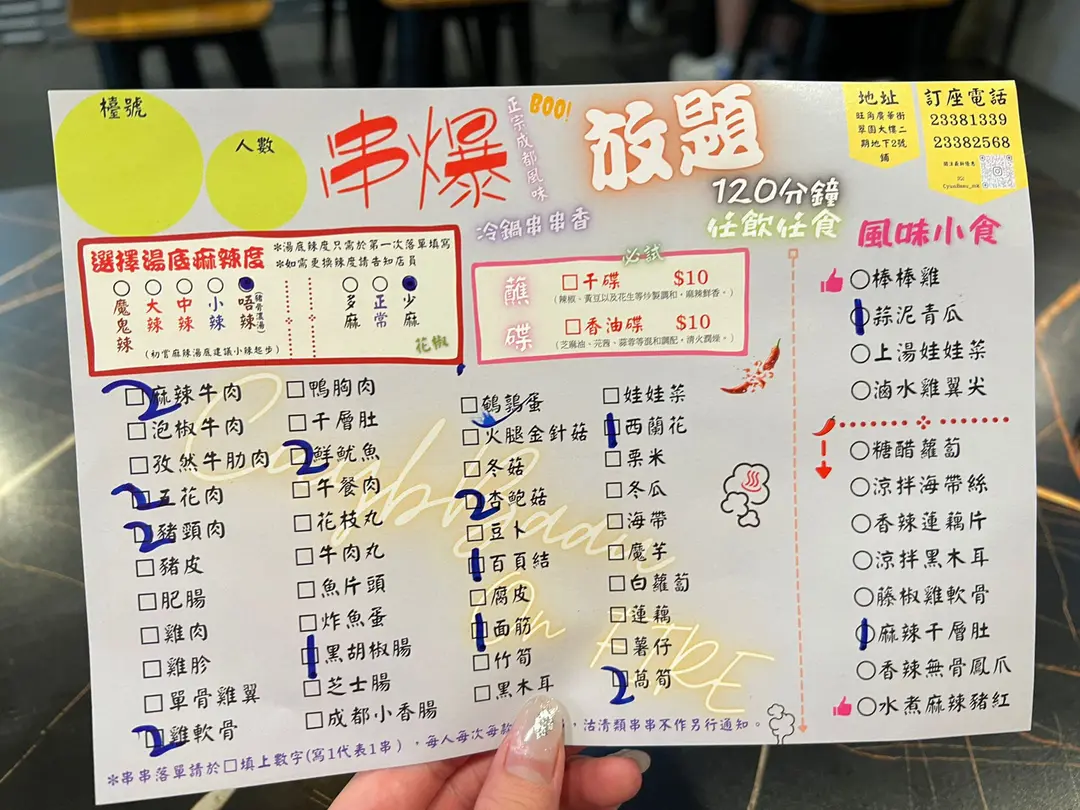 檯號
人數
串爆
正宗成都風味
BOO!
放題
120分鐘
任飲任食
冷鍋串串香
地址
旺角廣華街
翠園大樓二
期地下2號
鋪
訂座電話
23381339
23382568
選擇湯底麻辣度
*湯底辣度只需於第一次落單填寫
*如需更換辣度請告知店員
魔鬼辣
大辣
中辣
小辣
唔辣
(豬骨濃湯)
多麻
正常
少麻
(初嘗麻辣湯底建議小辣起步)
花椒
必試
蘸碟
□干碟 $10
(辣椒、黃豆以及花生等炒製調和，麻辣鮮香。)
□香油碟 $10
(芝麻油、芫茜、蒜蓉等混和調配，清火潤燥。)
2 麻辣牛肉
□泡椒牛肉
□孜然牛肋肉
2 五花肉
2 豬頸肉
□豬皮
□肥腸
□雞肉
□雞胗
□單骨雞翼
2 雞軟骨
□鴨胸肉
□千層肚
2 鮮魷魚
□午餐肉
□花枝丸
□牛肉丸
□魚片頭
□炸魚蛋
1 黑胡椒腸
□芝士腸
□成都小香腸
□鵪鶉蛋
□火腿金針菇
□冬菇
2 杏鮑菇
□豆卜
1 百頁結
□腐皮
1 面筋
□竹筍
□黑木耳
□娃娃菜
1 西蘭花
□栗米
□冬瓜
□海帶
□魔芋
□白蘿蔔
□蓮藕
□薯仔
2 萵筍
風味小食
○棒棒雞
1 蒜泥青瓜
○上湯娃娃菜
○滷水雞翼尖
○糖醋蘿蔔
○涼拌海帶絲
○香辣蓮藕片
○涼拌黑木耳
○藤椒雞軟骨
1 麻辣千層肚
○香辣無骨鳳爪
○水煮麻辣豬紅
On FIRE
*串串落單請於□填上數字(寫1代表1串)，每人每次每款
，沽清類串串不作另行通知。